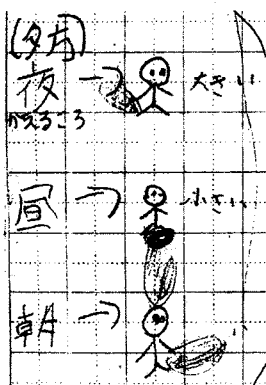 (夕方)
夜 → 大きい
かえるころ
昼 → 小さい
朝 →